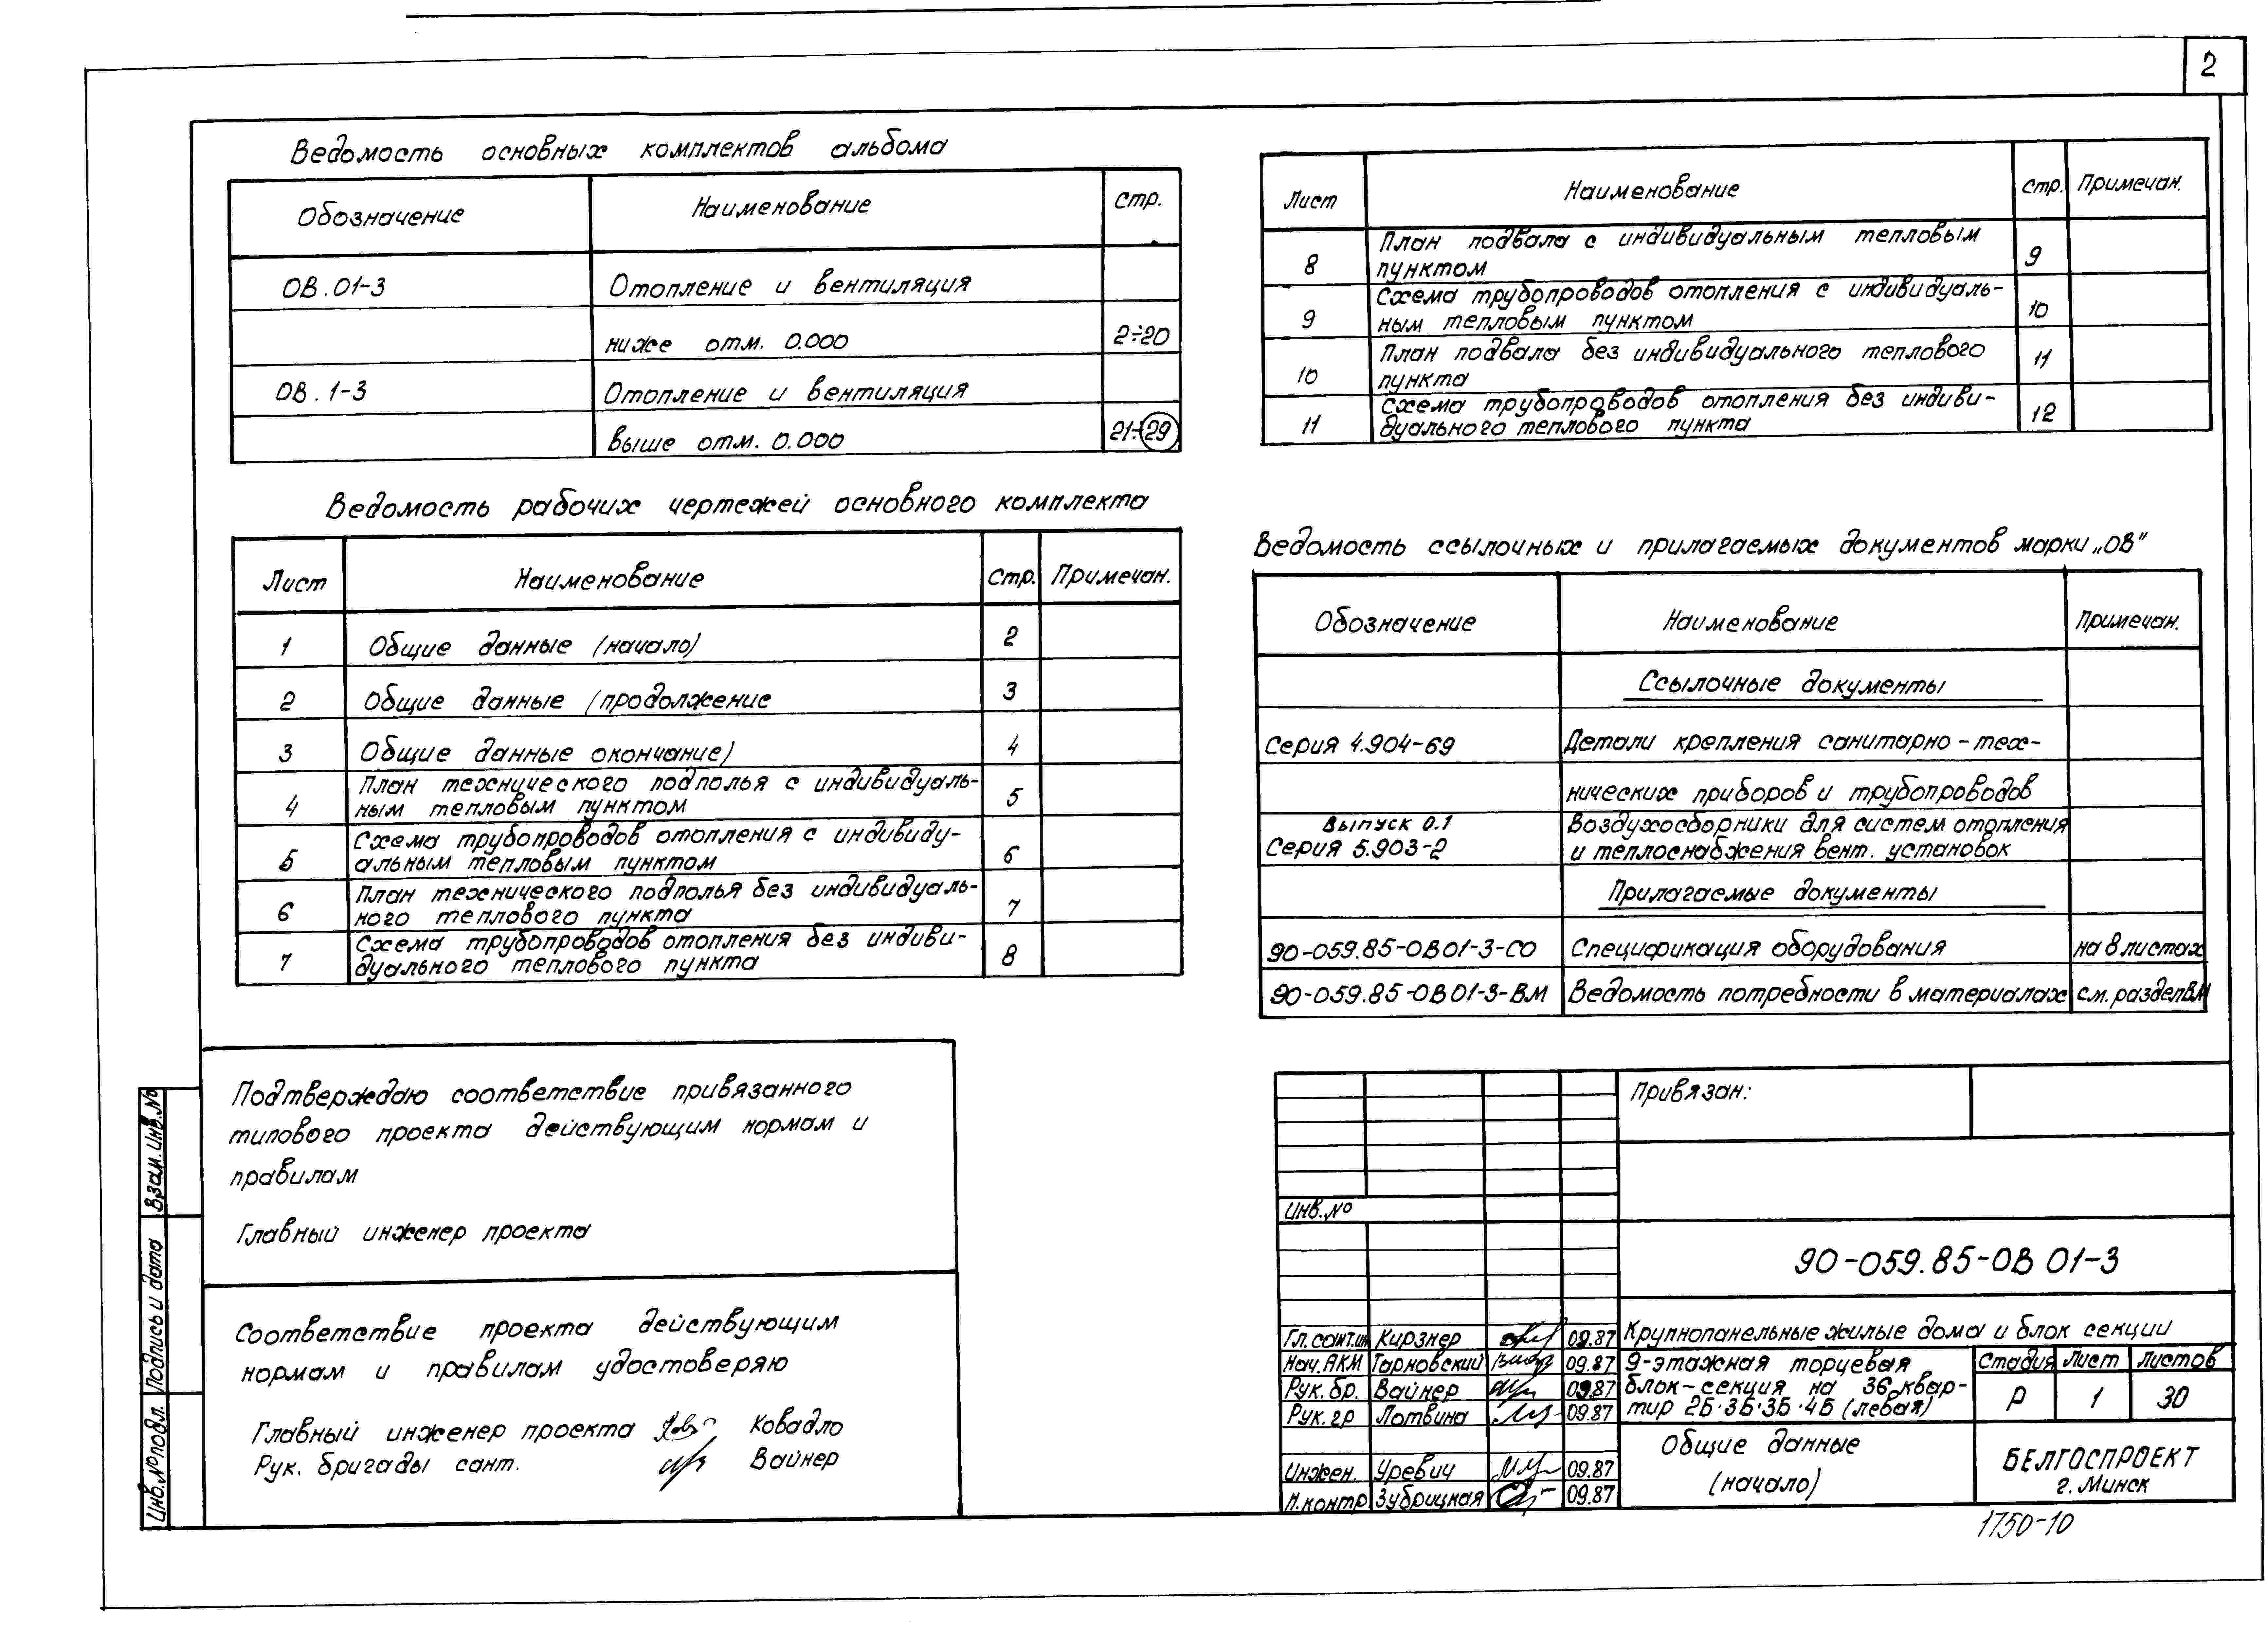 2
Ведомость основных комплектов альбома
Обозначение Наименование Стр.
ОВ.01-3 Отопление и вентиляция
ниже отм. 0.000 2÷20
ОВ.1-3 Отопление и вентиляция
выше отм. 0.000 21÷29
Ведомость рабочих чертежей основного комплекта
Лист Наименование Стр. Примечан.
1 Общие данные (начало) 2
2 Общие данные (продолжение 3
3 Общие данные окончание) 4
План технического подполья с индивидуаль-
4 ным тепловым пунктом 5
Схема трубопроводов отопления с индивиду-
5 альным тепловым пунктом 6
План технического подполья без индивидуаль-
6 ного теплового пункта 7
Схема трубопроводов отопления без индиви-
7 дуального теплового пункта 8
Лист Наименование Стр. Примечан.
План подвала с индивидуальным тепловым
8 пунктом 9
Схема трубопроводов отопления с индивидуаль-
9 ным тепловым пунктом 10
План подвала без индивидуального теплового
10 пункта 11
Схема трубопроводов отопления без индиви-
11 дуального теплового пункта 12
Ведомость ссылочных и прилагаемых документов марки „ОВ"
Обозначение Наименование Примечан.
Ссылочные документы
Серия 4.904-69 Детали крепления санитарно-тех-
нических приборов и трубопроводов
Выпуск 0.1 Воздухосборники для систем отопления
Серия 5.903-2 и теплоснабжения вент. установок
Прилагаемые документы
90-059.85-ОВ01-3-СО Спецификация оборудования на 8 листах
90-059.85-ОВ01-3-ВМ Ведомость потребности в материалах см. раздел ВМ
Подтверждаю соответствие привязанного
типового проекта действующим нормам и
правилам
Главный инженер проекта
Соответствие проекта действующим
нормам и правилам удостоверяю
Главный инженер проекта Ковадло
Рук. бригады сант. Вайнер
Взам. Инв. №
Подпись и дата
Инв. № подл.
Привязан:
Инв. №
90-059.85-ОВ 01-3
Гл. сант.ин Кирзнер 09.87
Нач. АКМ Тарновский 09.87
Рук. бр. Вайнер 09.87
Рук. гр Лотвина 09.87
Инжен. Уревич 09.87
Н.контр Зубрицкая 09.87
Крупнопанельные жилые дома и блок секции
9-этажная торцевая
блок-секция на 36 квар-
тир 2Б·3Б·3Б·4Б (левая)
Стадия Лист Листов
Р 1 30
Общие данные
(начало)
БЕЛГОСПРОЕКТ
г. Минск
1750-10